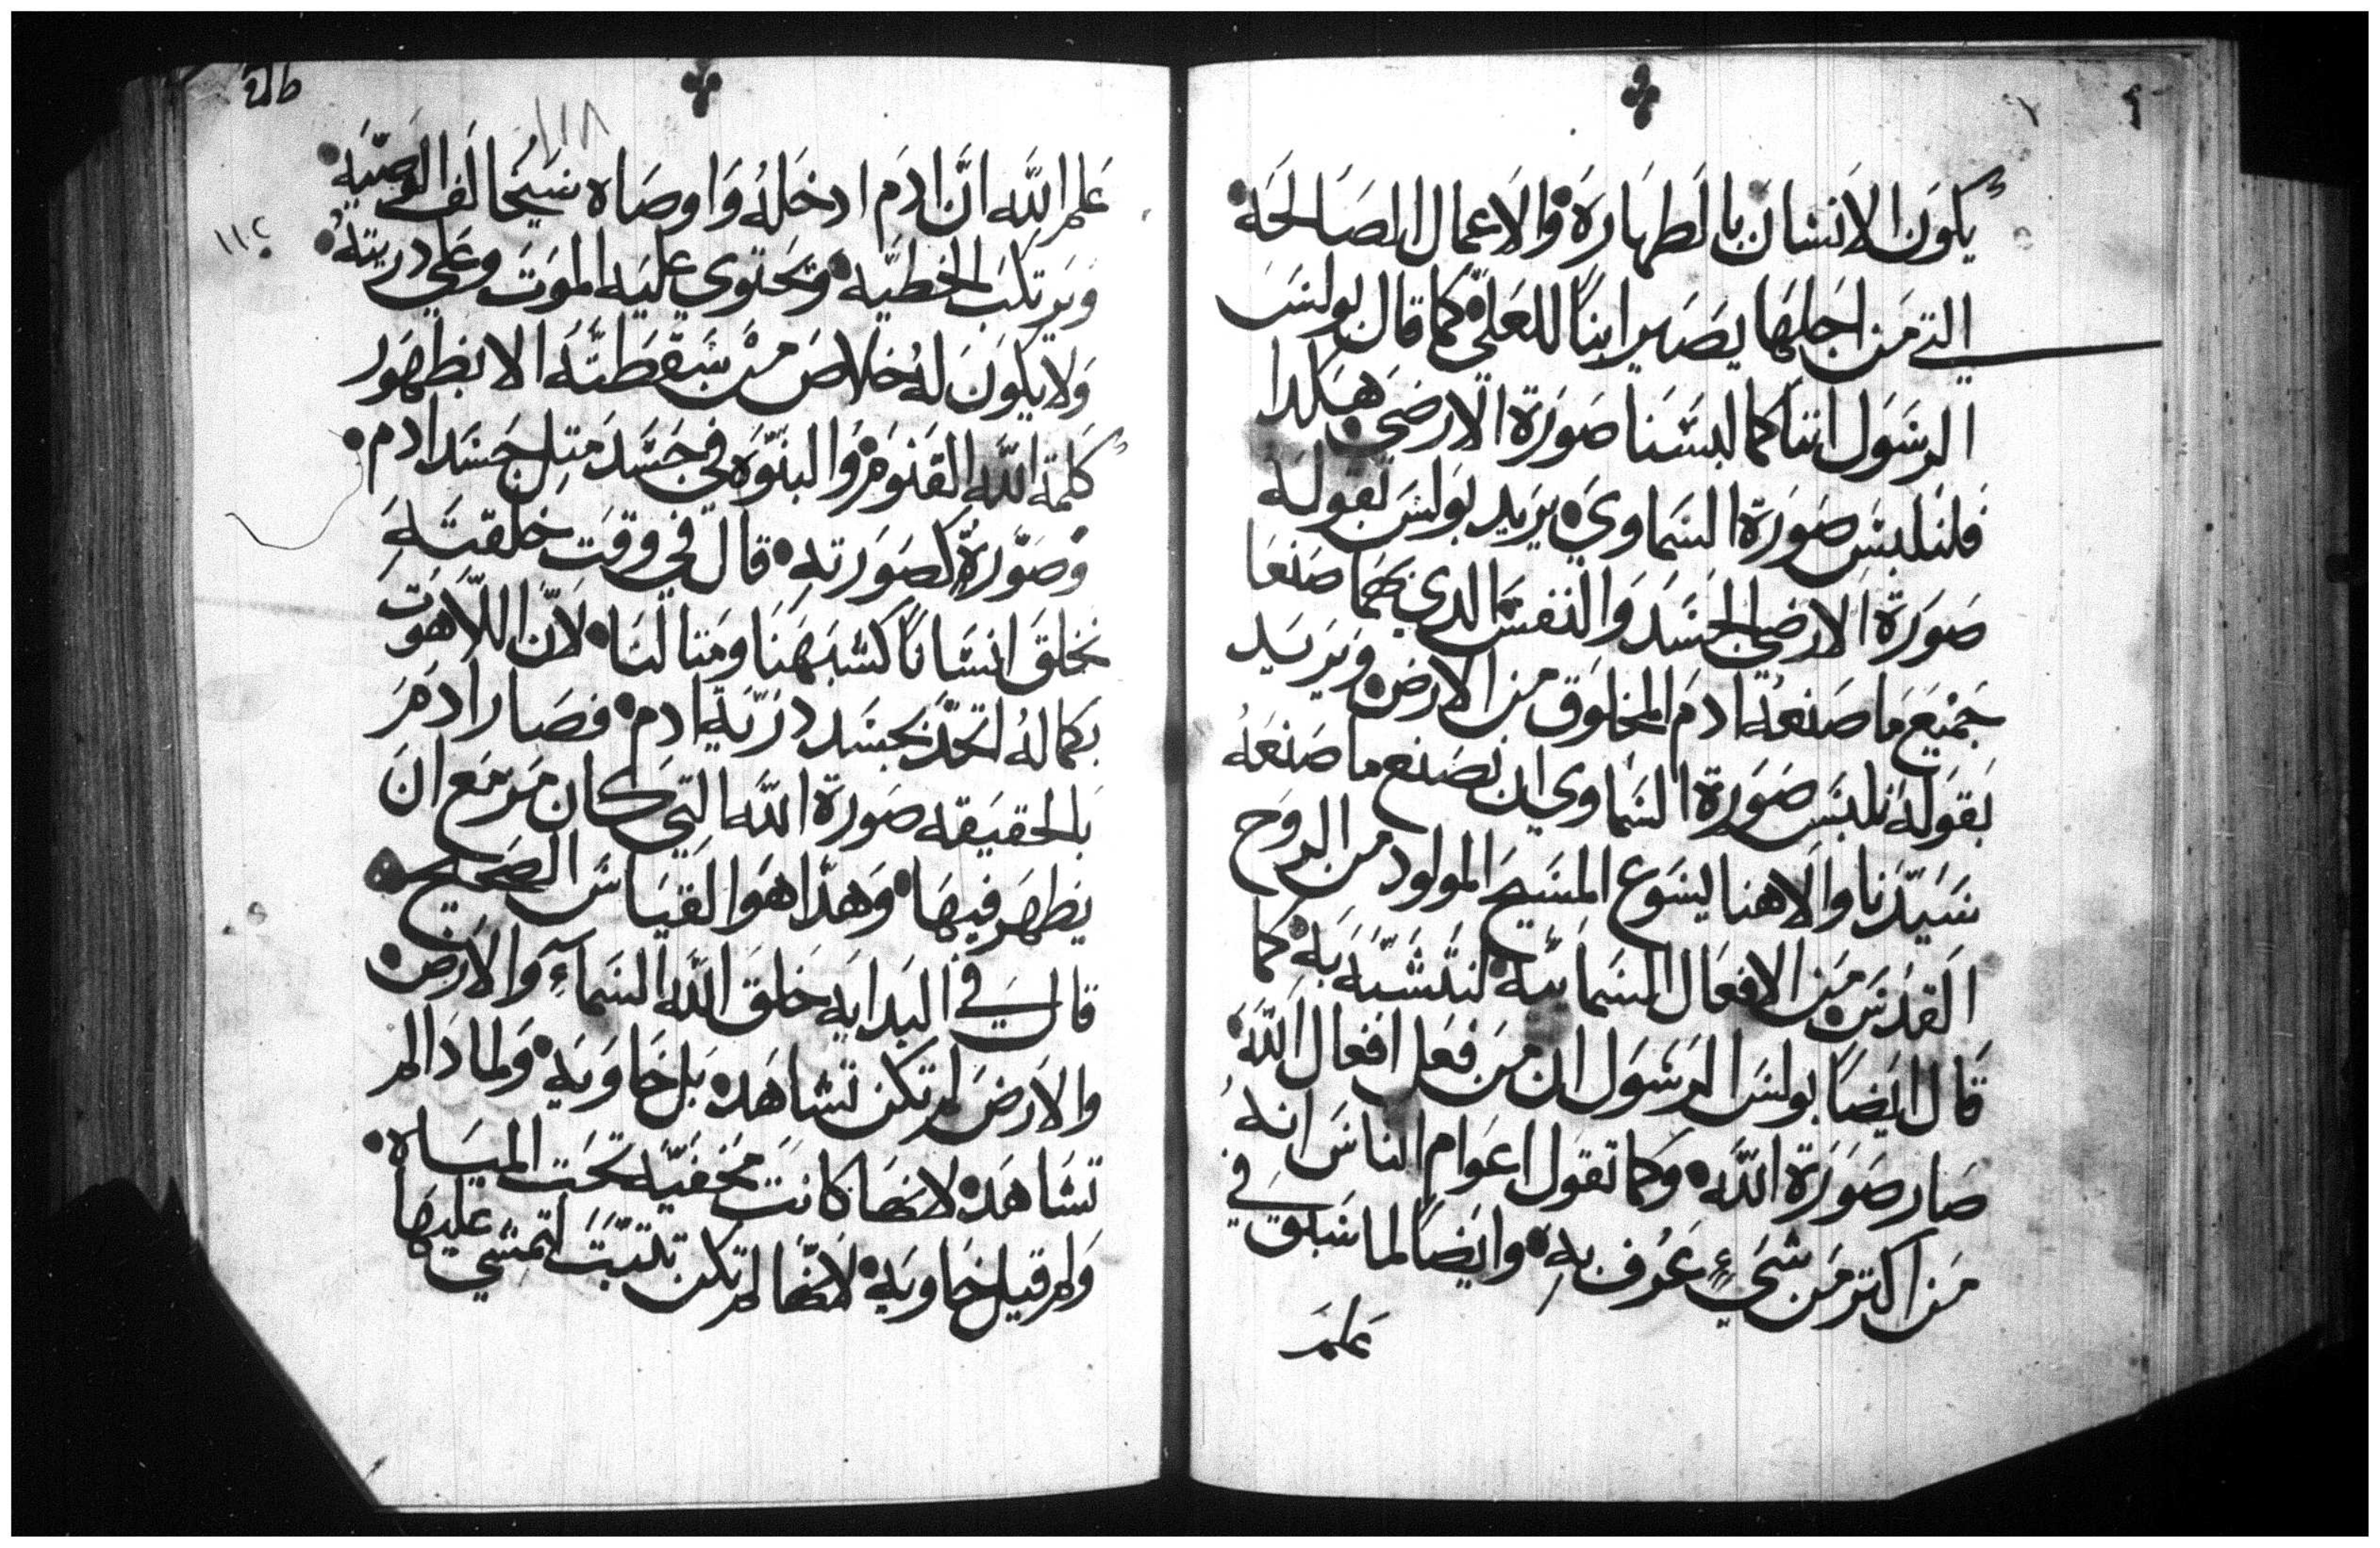 يكون الانسان بالطهارة والاعمال الصالحه
التي من اجلها يصير ابناً للعلي كما قال بولس
الرسول اننا كما لبسنا صورة الارضي هكدا
فلنلبس صورة السماوي يريد بولس بقوله
صورة الارضي الجسد والنفس الدي بهما صنعا
جميع ما صنعه ادم المخلوق من الارض ويريد
بقوله نلبس صورة السماوي ان نصنع ما صنعه
سيدنا والاهنا يسوع المسيح المولود من الروح
القدس من الافعال السمائيه لنتشبه به كما
قال ايضاً بولس الرسول ان من فعل افعال الله
صار صورة الله وكما تقول اعوام الناس انه
من اكتر من شيء عرف به وايضاً لما سبق في
علم
١١٨
١١٤
علم الله ان ادم ادخله واوصاه سيخالف الوصيه
ويرتكب الخطيه وتحتوي عليه الموت وعلي دريته
ولا يكون له خلاص من سقطته الا بظهور
كلمة الله القنوم والبنوه في جسد متل جسد ادم
وصورة كصورته قال في وقت خلقته
نخلق انساناً كشبهنا ومتالنا لان اللاهوت
بكماله اتحد بجسد درية ادم فصار ادم
بالحقيقه صورة الله التي كان مزمع ان
يظهر فيها وهدا هو القياس الصحيح
قال في البدايه خلق الله السماء والارض
والارض لم تكن تشاهد بل خاويه ولمادا لم
تشاهد لانها كانت مخفيه تحت المياه
ولم قيل خاويه لانها لم تكن تتبت لتمشي عليها